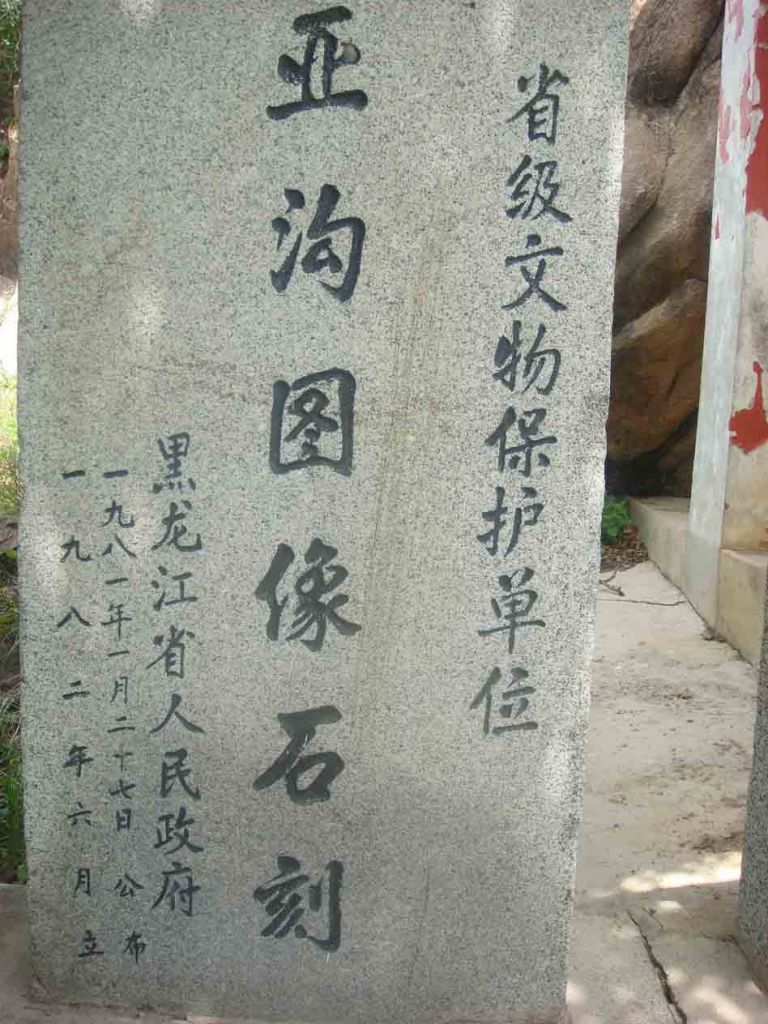 省级文物保护单位
亚沟图像石刻
黑龙江省人民政府
一九八一年一月二十七日公布
一九八二年六月立